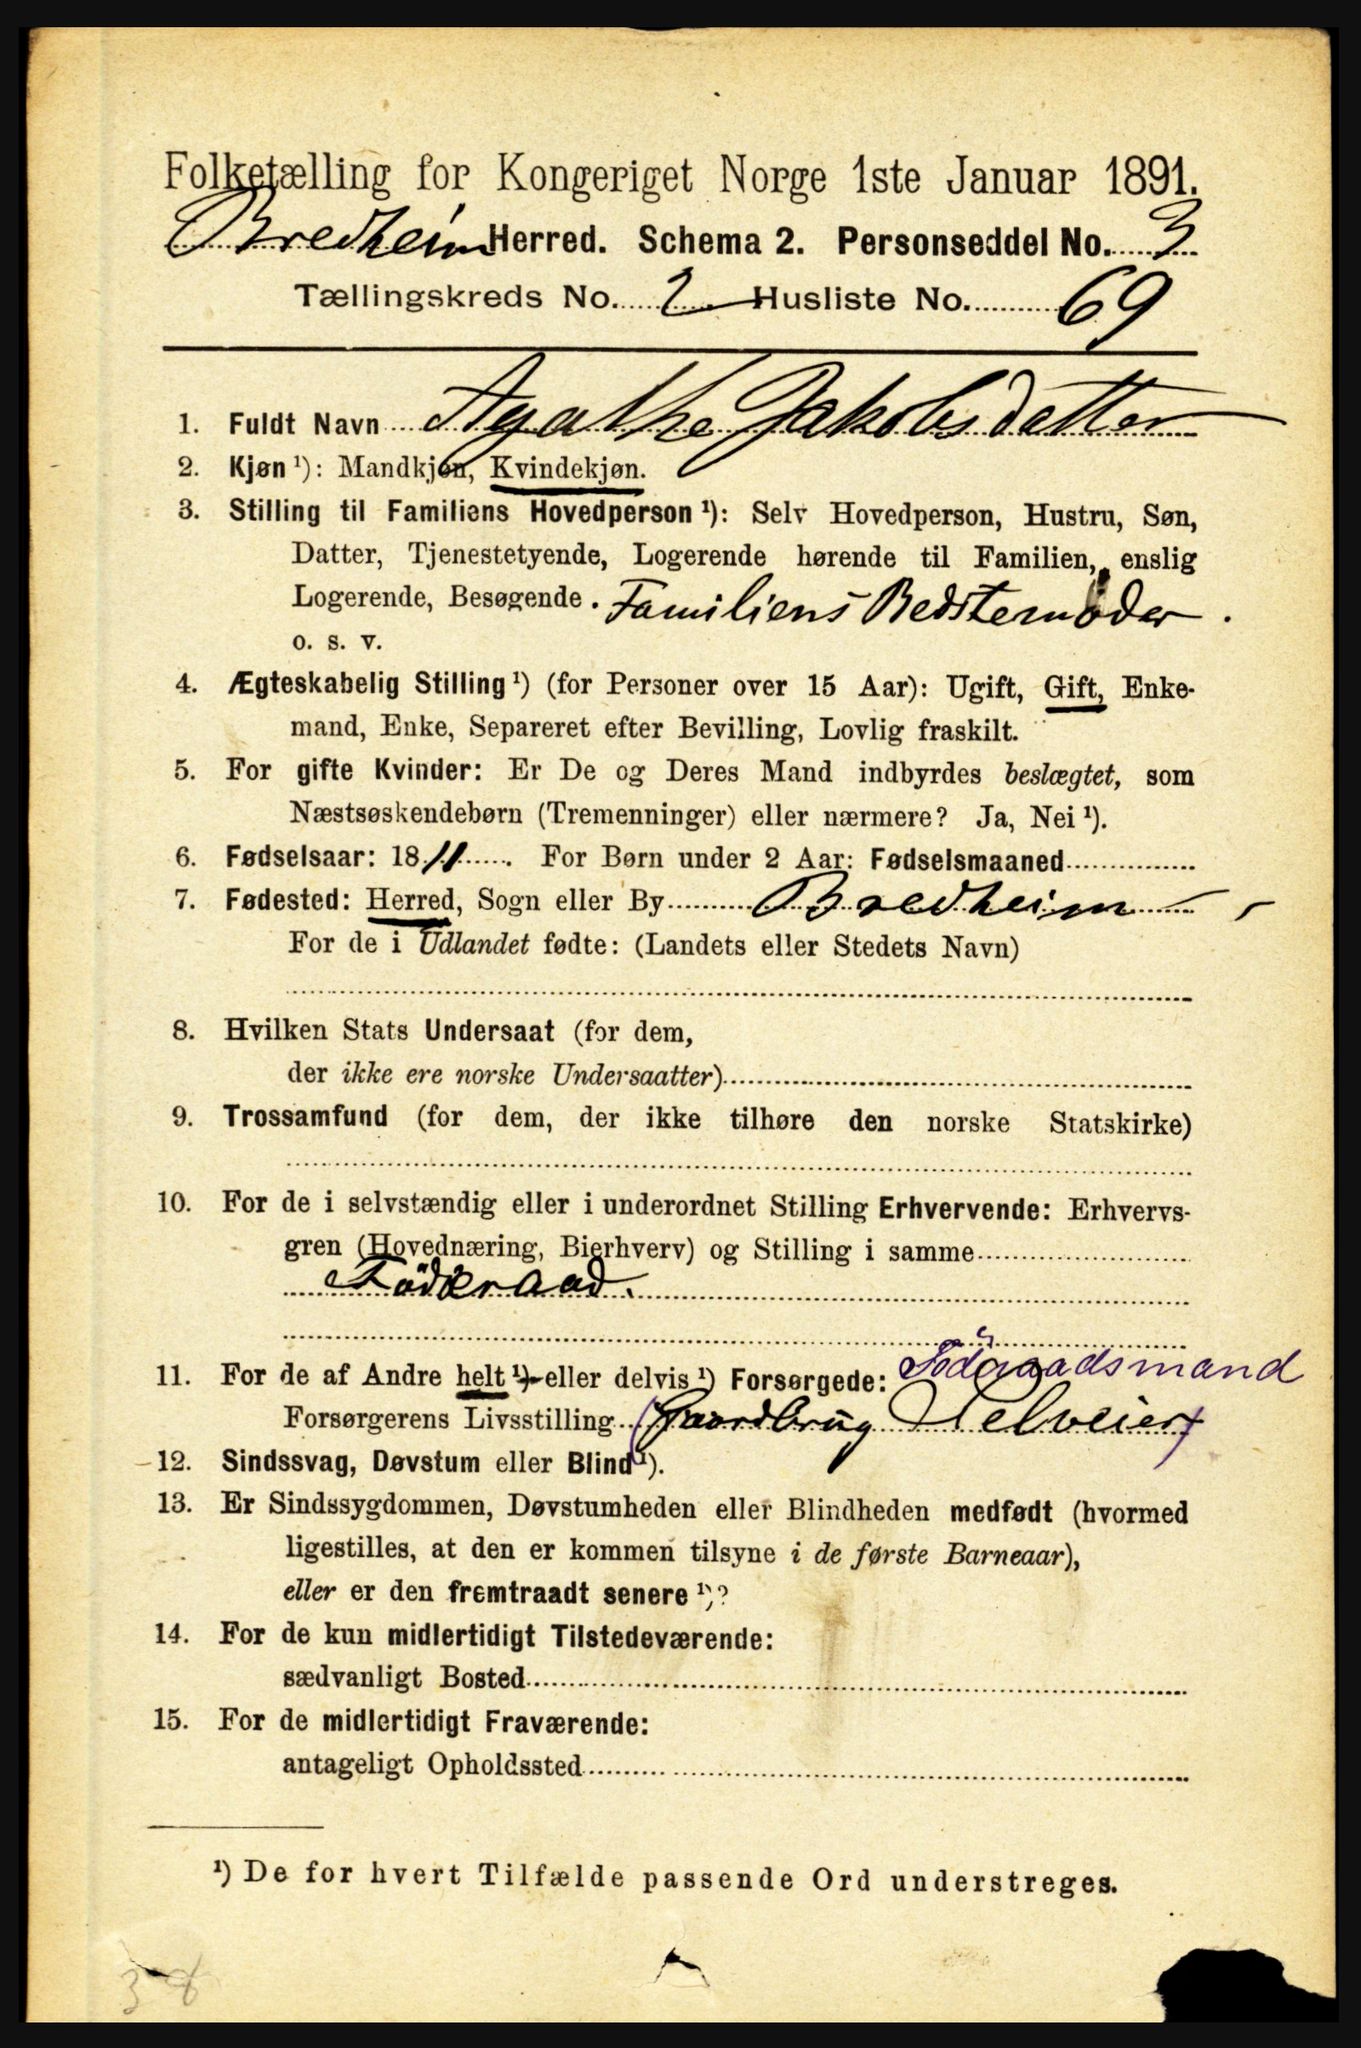 Folketælling for Kongeriget Norge 1ste Januar 1891.
Bredheim Herred. Schema 2. Personseddel No. 3
Tællingskreds No. 2 Husliste No. 69
1. Fuldt Navn Agathe Jakobsdatter
2. Kjøn ¹): Mandkjøn, Kvindekjøn.
3. Stilling til Familiens Hovedperson ¹): Selv Hovedperson, Hustru, Søn,
Datter, Tjenestetyende, Logerende hørende til Familien, enslig
Logerende, Besøgende . Familiens Bedstemoder .
o. s. v.
4. Ægteskabelig Stilling ¹) (for Personer over 15 Aar): Ugift, Gift, Enke-
mand, Enke, Separeret efter Bevilling, Lovlig fraskilt.
5. For gifte Kvinder: Er De og Deres Mand indbyrdes beslægtet, som
Næstsøskendebørn (Tremenninger) eller nærmere? Ja, Nei ¹).
6. Fødselsaar: 1811 For Børn under 2 Aar: Fødselsmaaned
7. Fødested: Herred, Sogn eller By Bredheim
For de i Udlandet fødte: (Landets eller Stedets Navn)
8. Hvilken Stats Undersaat (for dem,
der ikke ere norske Undersaatter)
9. Trossamfund (for dem, der ikke tilhøre den norske Statskirke)
10. For de i selvstændig eller i underordnet Stilling Erhvervende: Erhvervs-
gren (Hovednæring, Bierhverv) og Stilling i samme
Föderaad.
11. For de af Andre helt ¹) eller delvis ¹) Forsørgede: Föderaadsmand
Forsørgerens Livsstilling (Gaardbrug Selveier)
12. Sindssvag, Døvstum eller Blind ¹).
13. Er Sindssygdommen, Døvstumheden eller Blindheden medfødt (hvormed
ligestilles, at den er kommen tilsyne i de første Barneaar),
eller er den fremtraadt senere ¹)?
14. For de kun midlertidigt Tilstedeværende:
sædvanligt Bosted
15. For de midlertidigt Fraværende:
antageligt Opholdssted
¹) De for hvert Tilfælde passende Ord understreges.
38